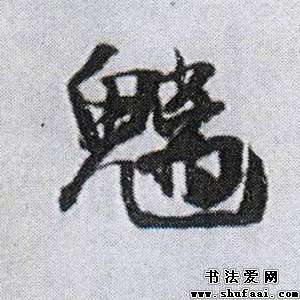 魑
书法爱网
www.shufaai.com